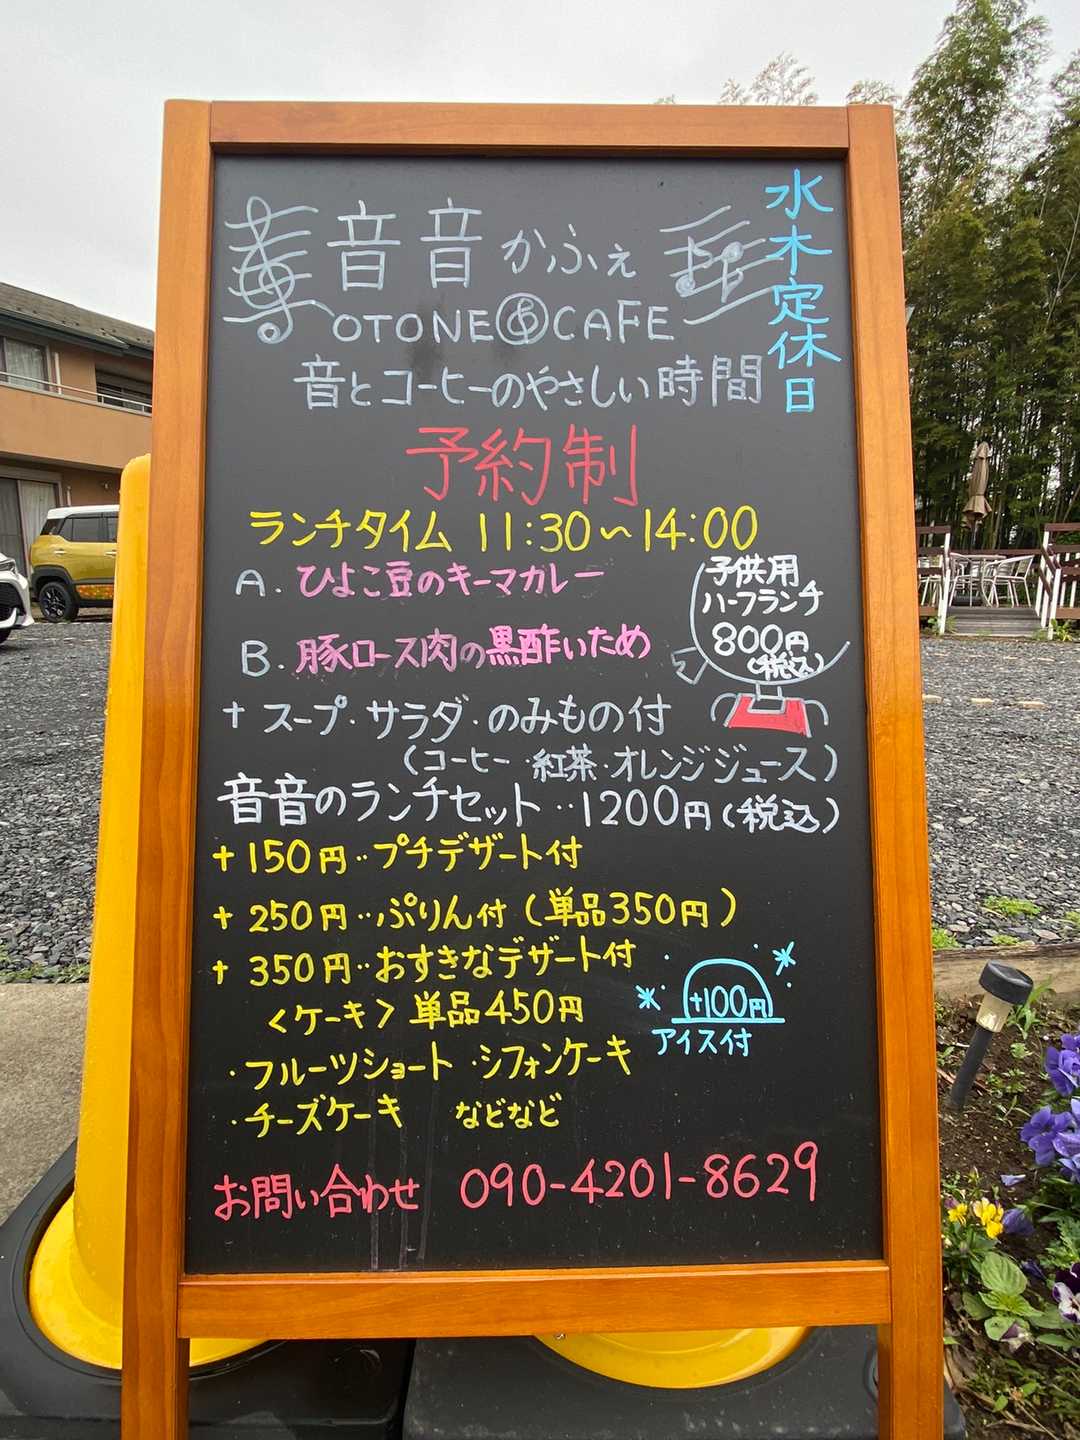 音音かふぇ
OTONE CAFE
音とコーヒーのやさしい時間
水木定休日
予約制
ランチタイム 11:30〜14:00
A. ひよこ豆のキーマカレー
B. 豚ロース肉の黒酢いため
子供用
ハーフランチ
800円
(税込)
+ スープ・サラダ・のみもの付
(コーヒー・紅茶・オレンジジュース)
音音のランチセット‥1200円(税込)
+150円‥プチデザート付
+250円‥ぷりん付(単品350円)
+350円‥おすきなデザート付
<ケーキ>単品450円
・フルーツショート ・シフォンケーキ
・チーズケーキ などなど
+100円
アイス付
お問い合わせ 090-4201-8629